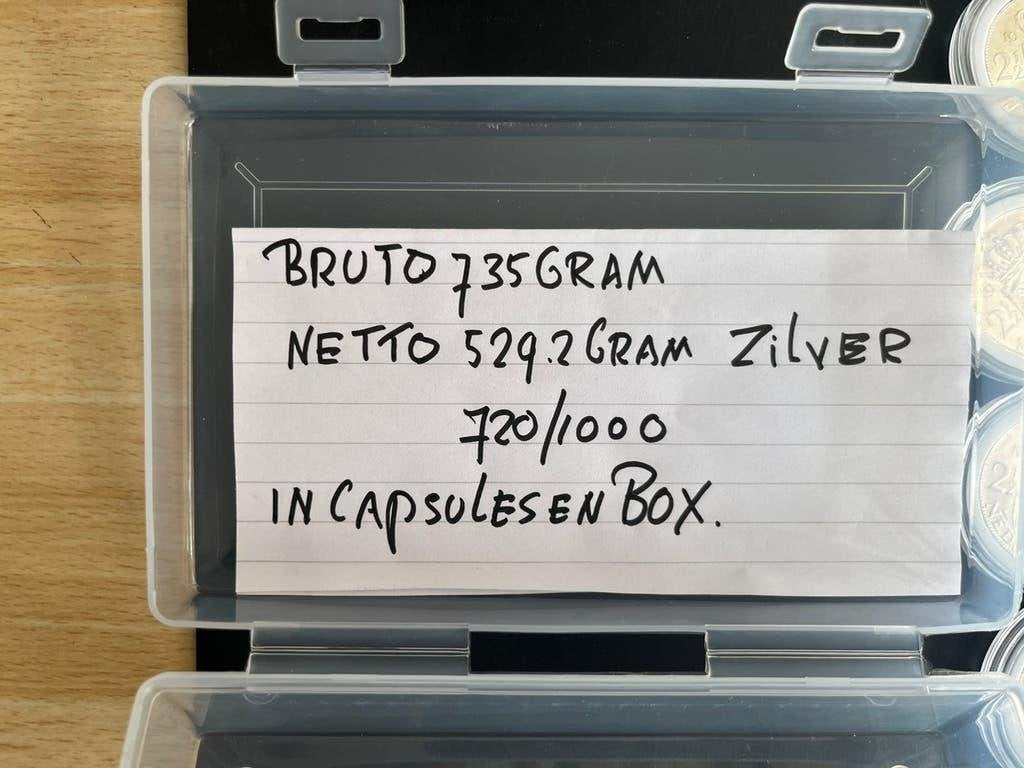 BRUTO 735 GRAM
NETTO 529.2 GRAM ZilVER
720/1000
IN CAPSULES EN BOX.